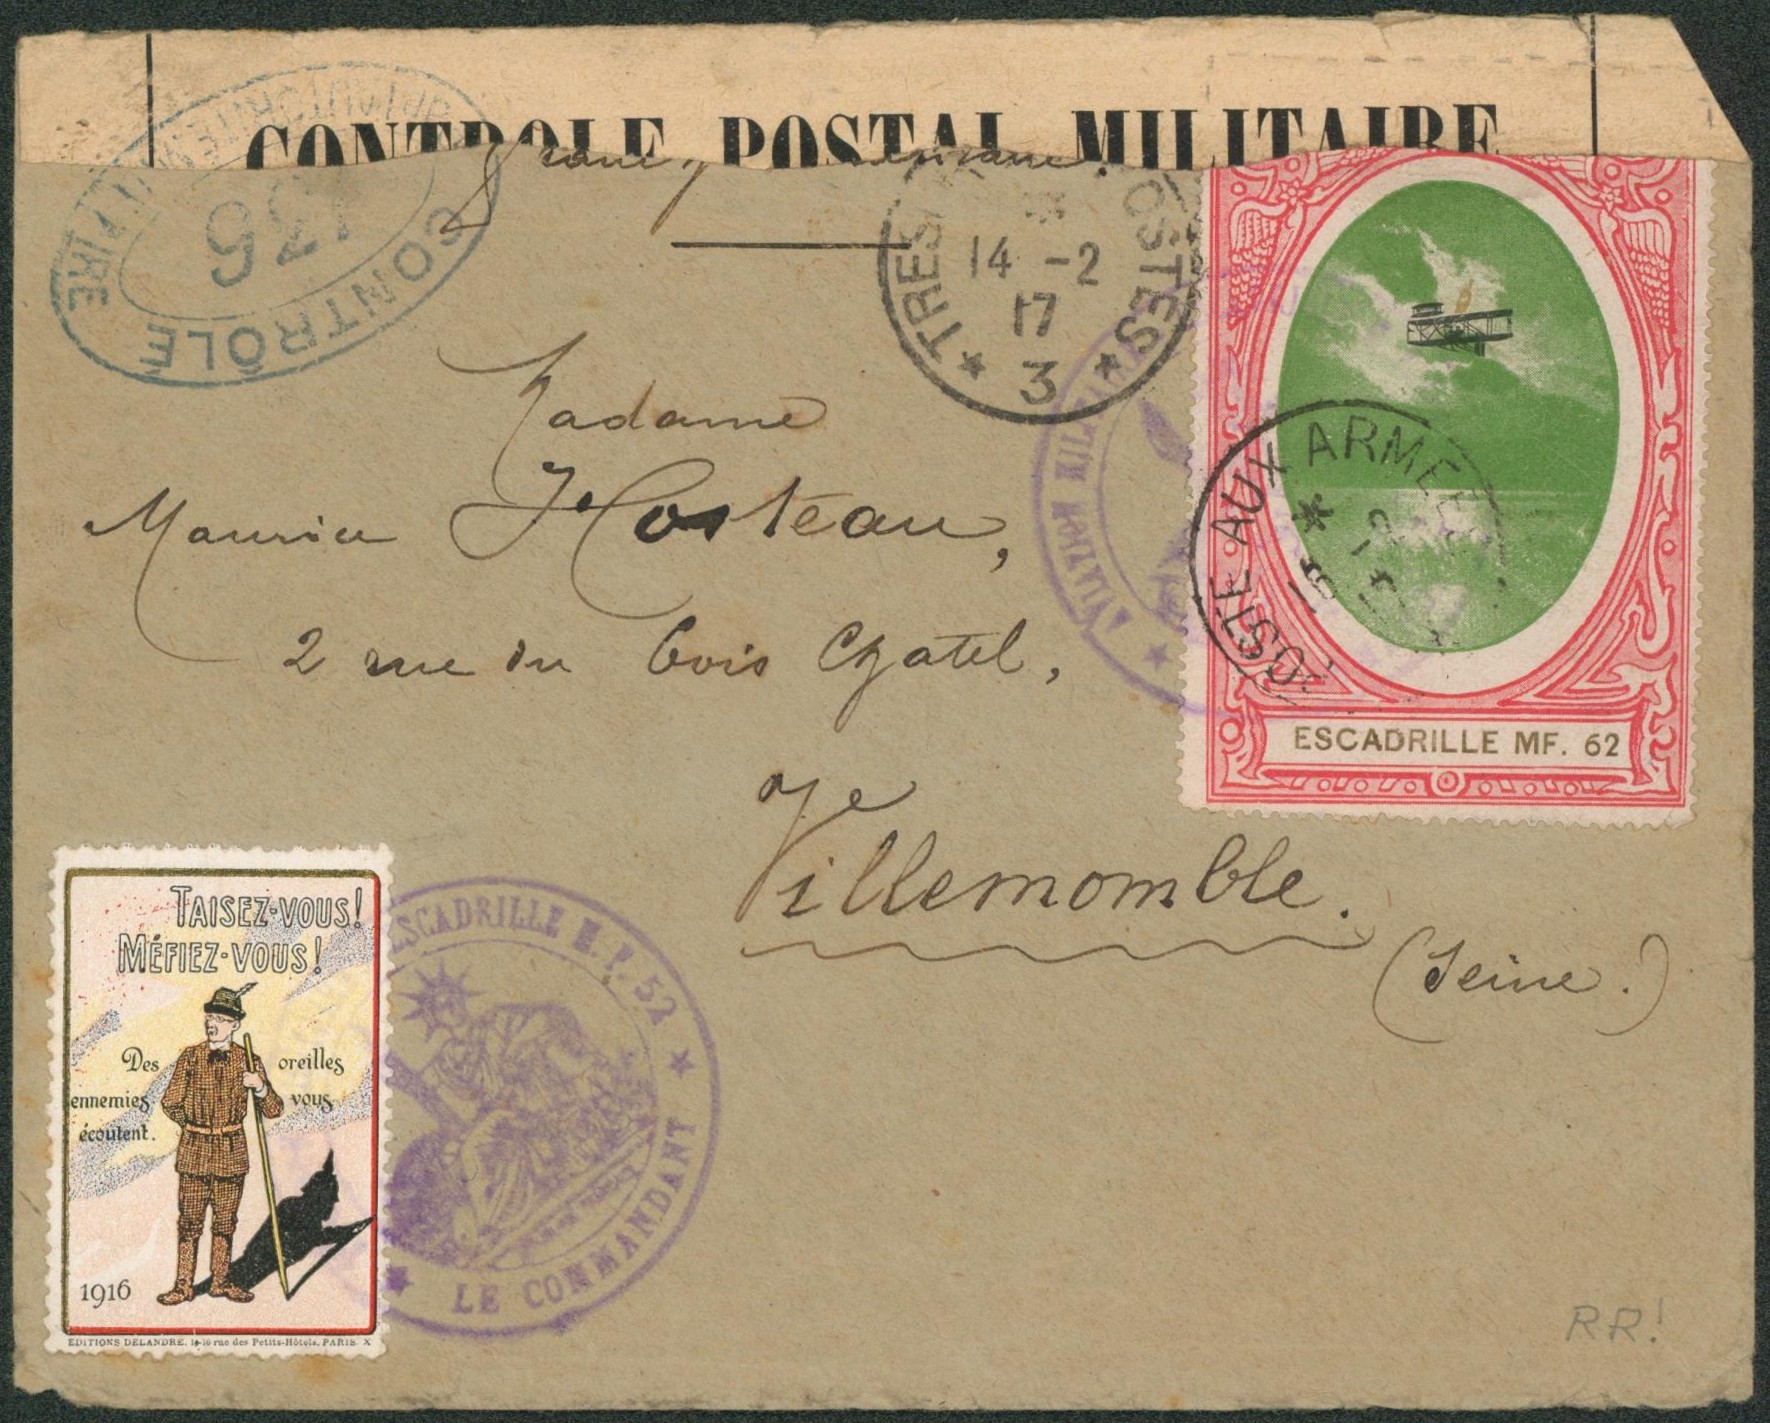 CONTROLE POSTAL MILITAIRE
CONTRÔLE
136
TRES POSTES
14 -2
17
3
Madame
Maurice Hosteau,
2 rue du bois Chatel,
Villemomble.
(Seine.)
AVIATION MILITAIRE
POSTE AUX ARMEES
ESCADRILLE MF. 62
TAISEZ-VOUS!
MÉFIEZ-VOUS!
Des oreilles
ennemies vous
écoutent.
1916
EDITIONS DELANDRE. 14-16 rue des Petits-Hôtels. PARIS. X
ESCADRILLE M.F. 52
LE COMMANDANT
RR!